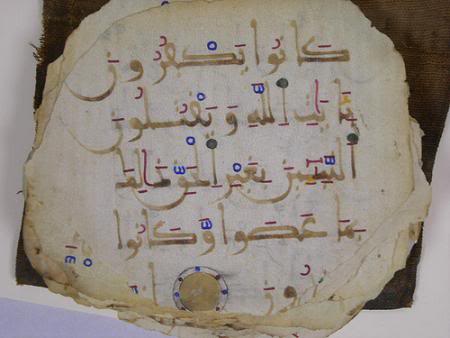 كانوا يكفرون
بايت الله ويقتلون
النبين بغير الحق ذلك
بما عصوا وكانوا